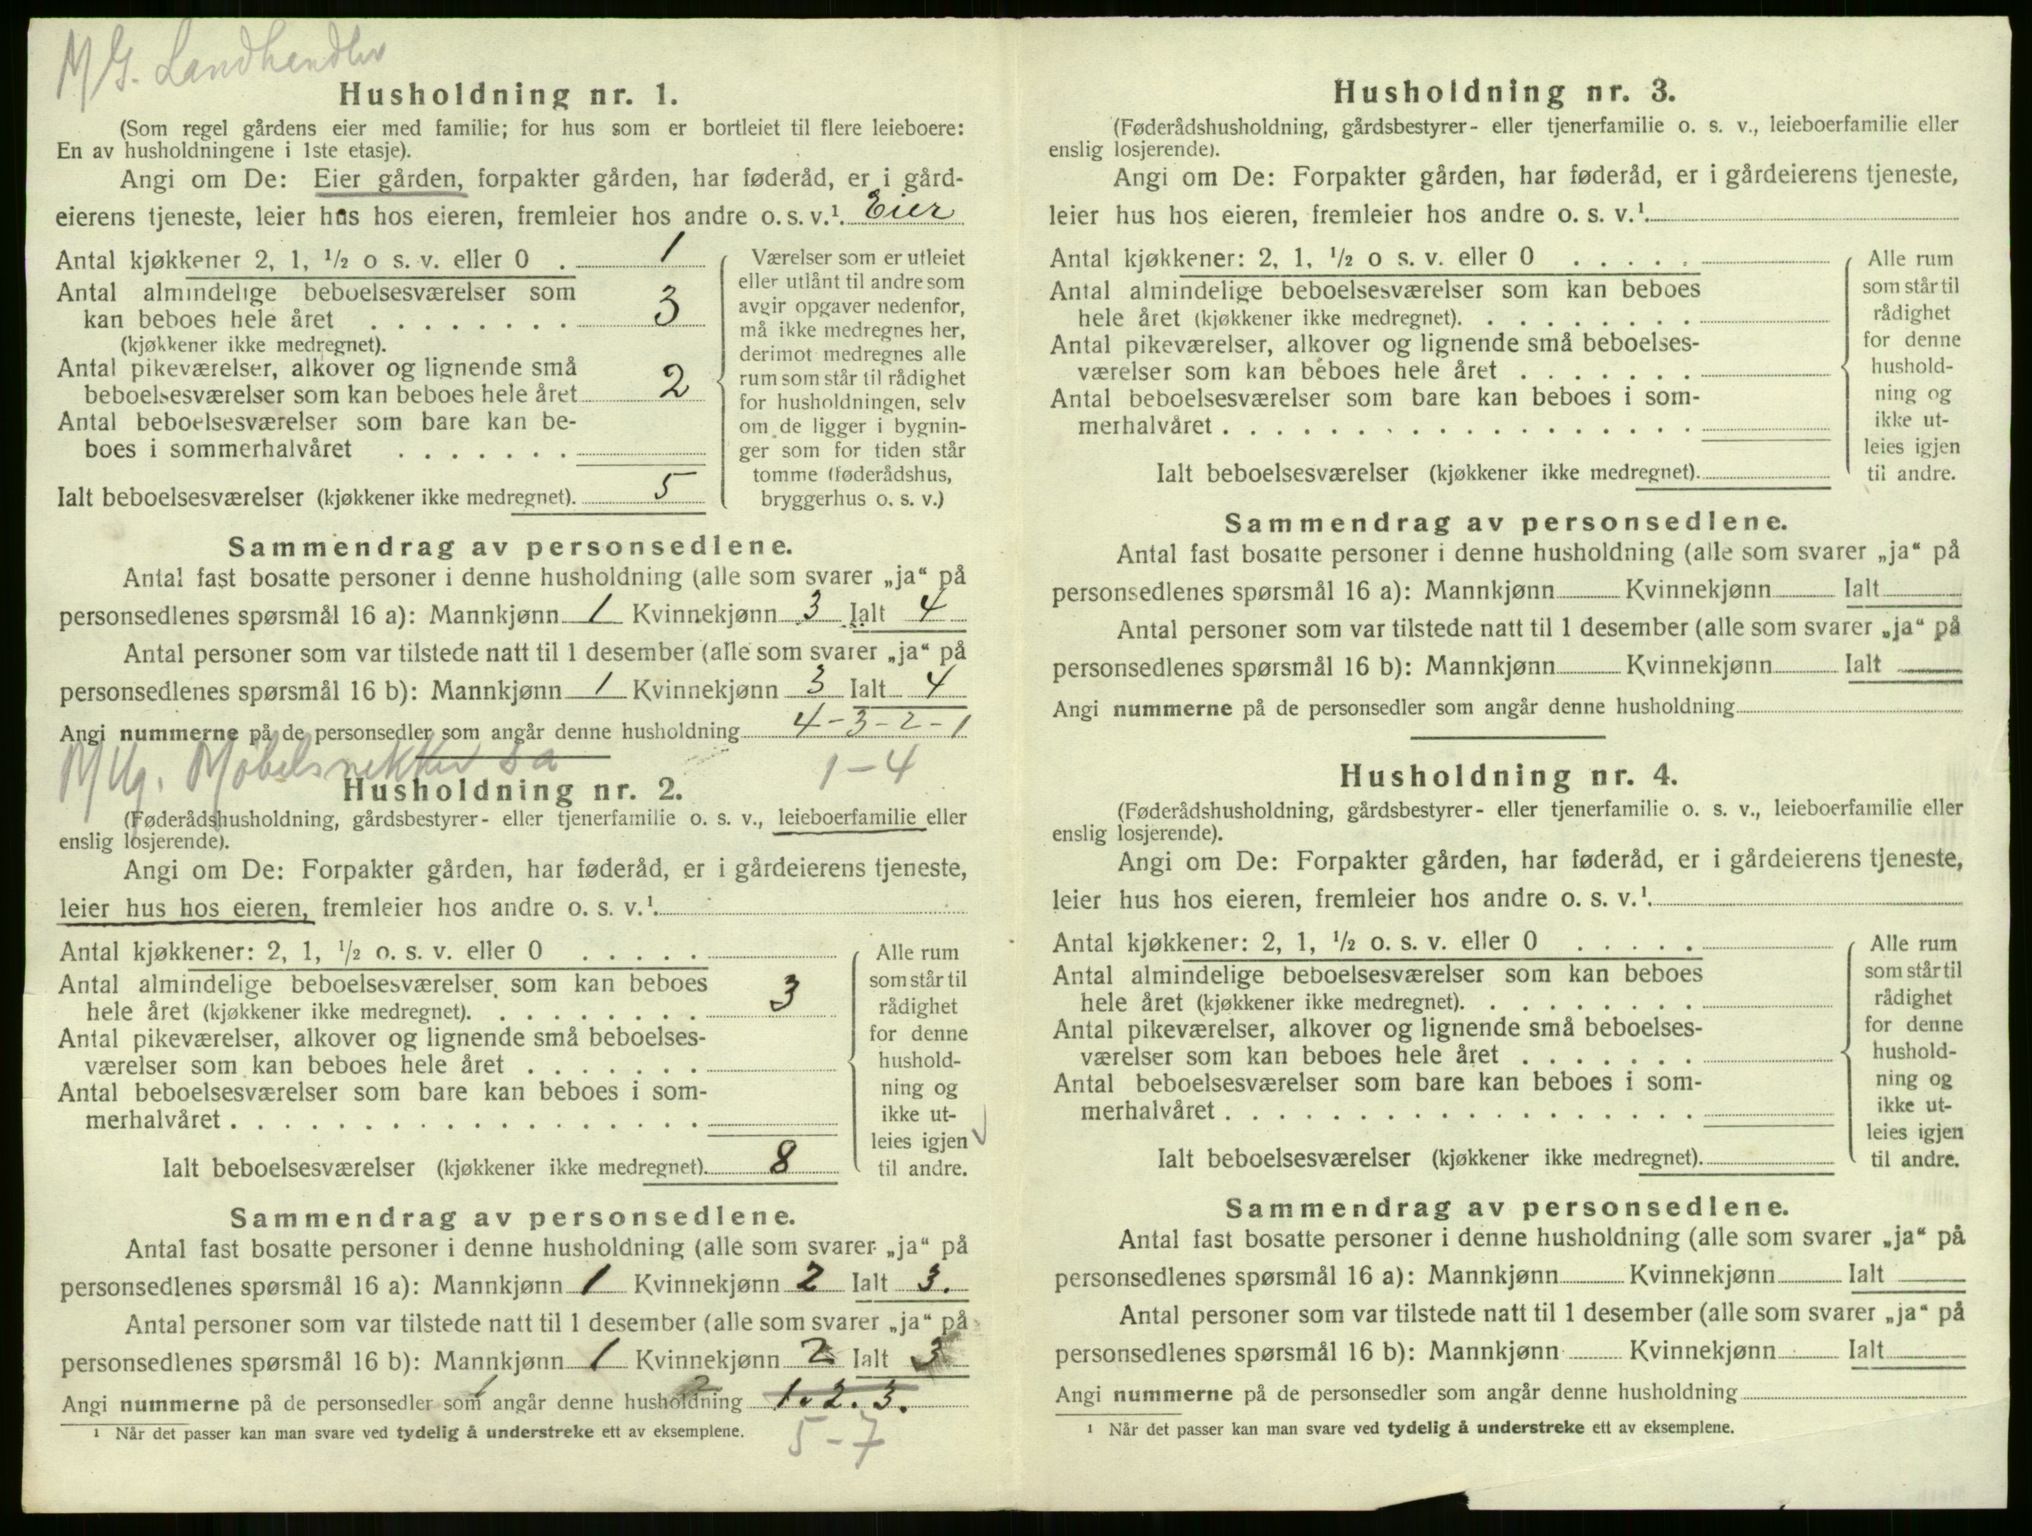 M G. Landhandler
Husholdning nr. 1.
(Som regel gårdens eier med familie; for hus som er bortleiet til flere leieboere:
En av husholdningene i 1ste etasje).
Angi om De: Eier gården, forpakter gården, har føderåd, er i gård-
eierens tjeneste, leier hus hos eieren, fremleier hos andre o. s. v.¹ Eier
Antal kjøkkener 2, 1, ½ o s. v. eller 0 . 1
Antal almindelige beboelsesværelser som
kan beboes hele året . . . . . . . . 3
(kjøkkener ikke medregnet).
Antal pikeværelser, alkover og lignende små
beboelsesværelser som kan beboes hele året 2
Antal beboelsesværelser som bare kan be-
boes i sommerhalvåret . . . . . . .
Ialt beboelsesværelser (kjøkkener ikke medregnet). 5
Værelser som er utleiet
eller utlånt til andre som
avgir opgaver nedenfor,
må ikke medregnes her,
derimot medregnes alle
rum som står til rådighet
for husholdningen, selv
om de ligger i bygnin-
ger som for tiden står
tomme (føderådshus,
bryggerhus o. s. v.)
Sammendrag av personsedlene.
Antal fast bosatte personer i denne husholdning (alle som svarer „ja“ på
personsedlenes spørsmål 16 a): Mannkjønn 1 Kvinnekjønn 3 Ialt 4
Antal personer som var tilstede natt til 1 desember (alle som svarer „ja“ på
personsedlenes spørsmål 16 b): Mannkjønn 1 Kvinnekjønn 3 Ialt 4
Angi nummerne på de personsedler som angår denne husholdning 4-3-2-1
M Ug. Møbelsnekker sa 1-4
Husholdning nr. 2.
(Føderådshusholdning, gårdsbestyrer- eller tjenerfamilie o. s. v., leieboerfamilie eller
enslig losjerende).
Angi om De: Forpakter gården, har føderåd, er i gårdeierens tjeneste,
leier hus hos eieren, fremleier hos andre o. s. v.¹
Antal kjøkkener: 2, 1, ½ o. s. v. eller 0 . . . . .
Antal almindelige beboelsesværelser som kan beboes
hele året (kjøkkener ikke medregnet). . . . . . . . . 3
Antal pikeværelser, alkover og lignende små beboelses-
værelser som kan beboes hele året . . . . . . .
Antal beboelsesværelser som bare kan beboes i som-
merhalvåret . . . . . . . . . . . . . . . . . .
Ialt beboelsesværelser (kjøkkener ikke medregnet). 8
Alle rum
som står til
rådighet
for denne
hushold-
ning og
ikke ut-
leies igjen
til andre.
Sammendrag av personsedlene.
Antal fast bosatte personer i denne husholdning (alle som svarer „ja“ på
personsedlenes spørsmål 16 a): Mannkjønn 1 Kvinnekjønn 2 Ialt 3.
Antal personer som var tilstede natt til 1 desember (alle som svarer „ja“ på
personsedlenes spørsmål 16 b): Mannkjønn 1 Kvinnekjønn 2 Ialt 3
Angi nummerne på de personsedler som angår denne husholdning 1. 2. 3.
¹ Når det passer kan man svare ved tydelig å understreke ett av eksemplene.
5-7
Husholdning nr. 3.
(Føderådshusholdning, gårdsbestyrer- eller tjenerfamilie o. s. v., leieboerfamilie eller
enslig losjerende).
Angi om De: Forpakter gården, har føderåd, er i gårdeierens tjeneste,
leier hus hos eieren, fremleier hos andre o. s. v.¹
Antal kjøkkener: 2, 1, ½ o s. v. eller 0 . . . . .
Antal almindelige beboelsesværelser som kan beboes
hele året (kjøkkener ikke medregnet). . . . . . . . .
Antal pikeværelser, alkover og lignende små beboelses-
værelser som kan beboes hele året . . . . . . .
Antal beboelsesværelser som bare kan beboes i som-
merhalvåret . . . . . . . . . . . . . . . . . .
Ialt beboelsesværelser (kjøkkener ikke medregnet).
Alle rum
som står til
rådighet
for denne
hushold-
ning og
ikke ut-
leies igjen
til andre.
Sammendrag av personsedlene.
Antal fast bosatte personer i denne husholdning (alle som svarer „ja“ på
personsedlenes spørsmål 16 a): Mannkjønn Kvinnekjønn Ialt
Antal personer som var tilstede natt til 1 desember (alle som svarer „ja“ på
personsedlenes spørsmål 16 b): Mannkjønn Kvinnekjønn Ialt
Angi nummerne på de personsedler som angår denne husholdning
Husholdning nr. 4.
(Føderådshusholdning, gårdsbestyrer- eller tjenerfamilie o. s. v., leieboerfamilie eller
enslig losjerende).
Angi om De: Forpakter gården, har føderåd, er i gårdeierens tjeneste,
leier hus hos eieren, fremleier hos andre o. s. v.¹
Antal kjøkkener: 2, 1, ½ o. s. v. eller 0 . . . . .
Antal almindelige beboelsesværelser som kan beboes
hele året (kjøkkener ikke medregnet). . . . . . . . .
Antal pikeværelser, alkover og lignende små beboelses-
værelser som kan beboes hele året . . . . . . .
Antal beboelsesværelser som bare kan beboes i som-
merhalvåret . . . . . . . . . . . . . . . . . .
Ialt beboelsesværelser (kjøkkener ikke medregnet).
Alle rum
som står til
rådighet
for denne
hushold-
ning og
ikke ut-
leies igjen
til andre.
Sammendrag av personsedlene.
Antal fast bosatte personer i denne husholdning (alle som svarer „ja“ på
personsedlenes spørsmål 16 a): Mannkjønn Kvinnekjønn Ialt
Antal personer som var tilstede natt til 1 desember (alle som svarer „ja“ på
personsedlenes spørsmål 16 b): Mannkjønn Kvinnekjønn Ialt
Angi nummerne på de personsedler som angår denne husholdning
¹ Når det passer kan man svare ved tydelig å understreke ett av eksemplene.